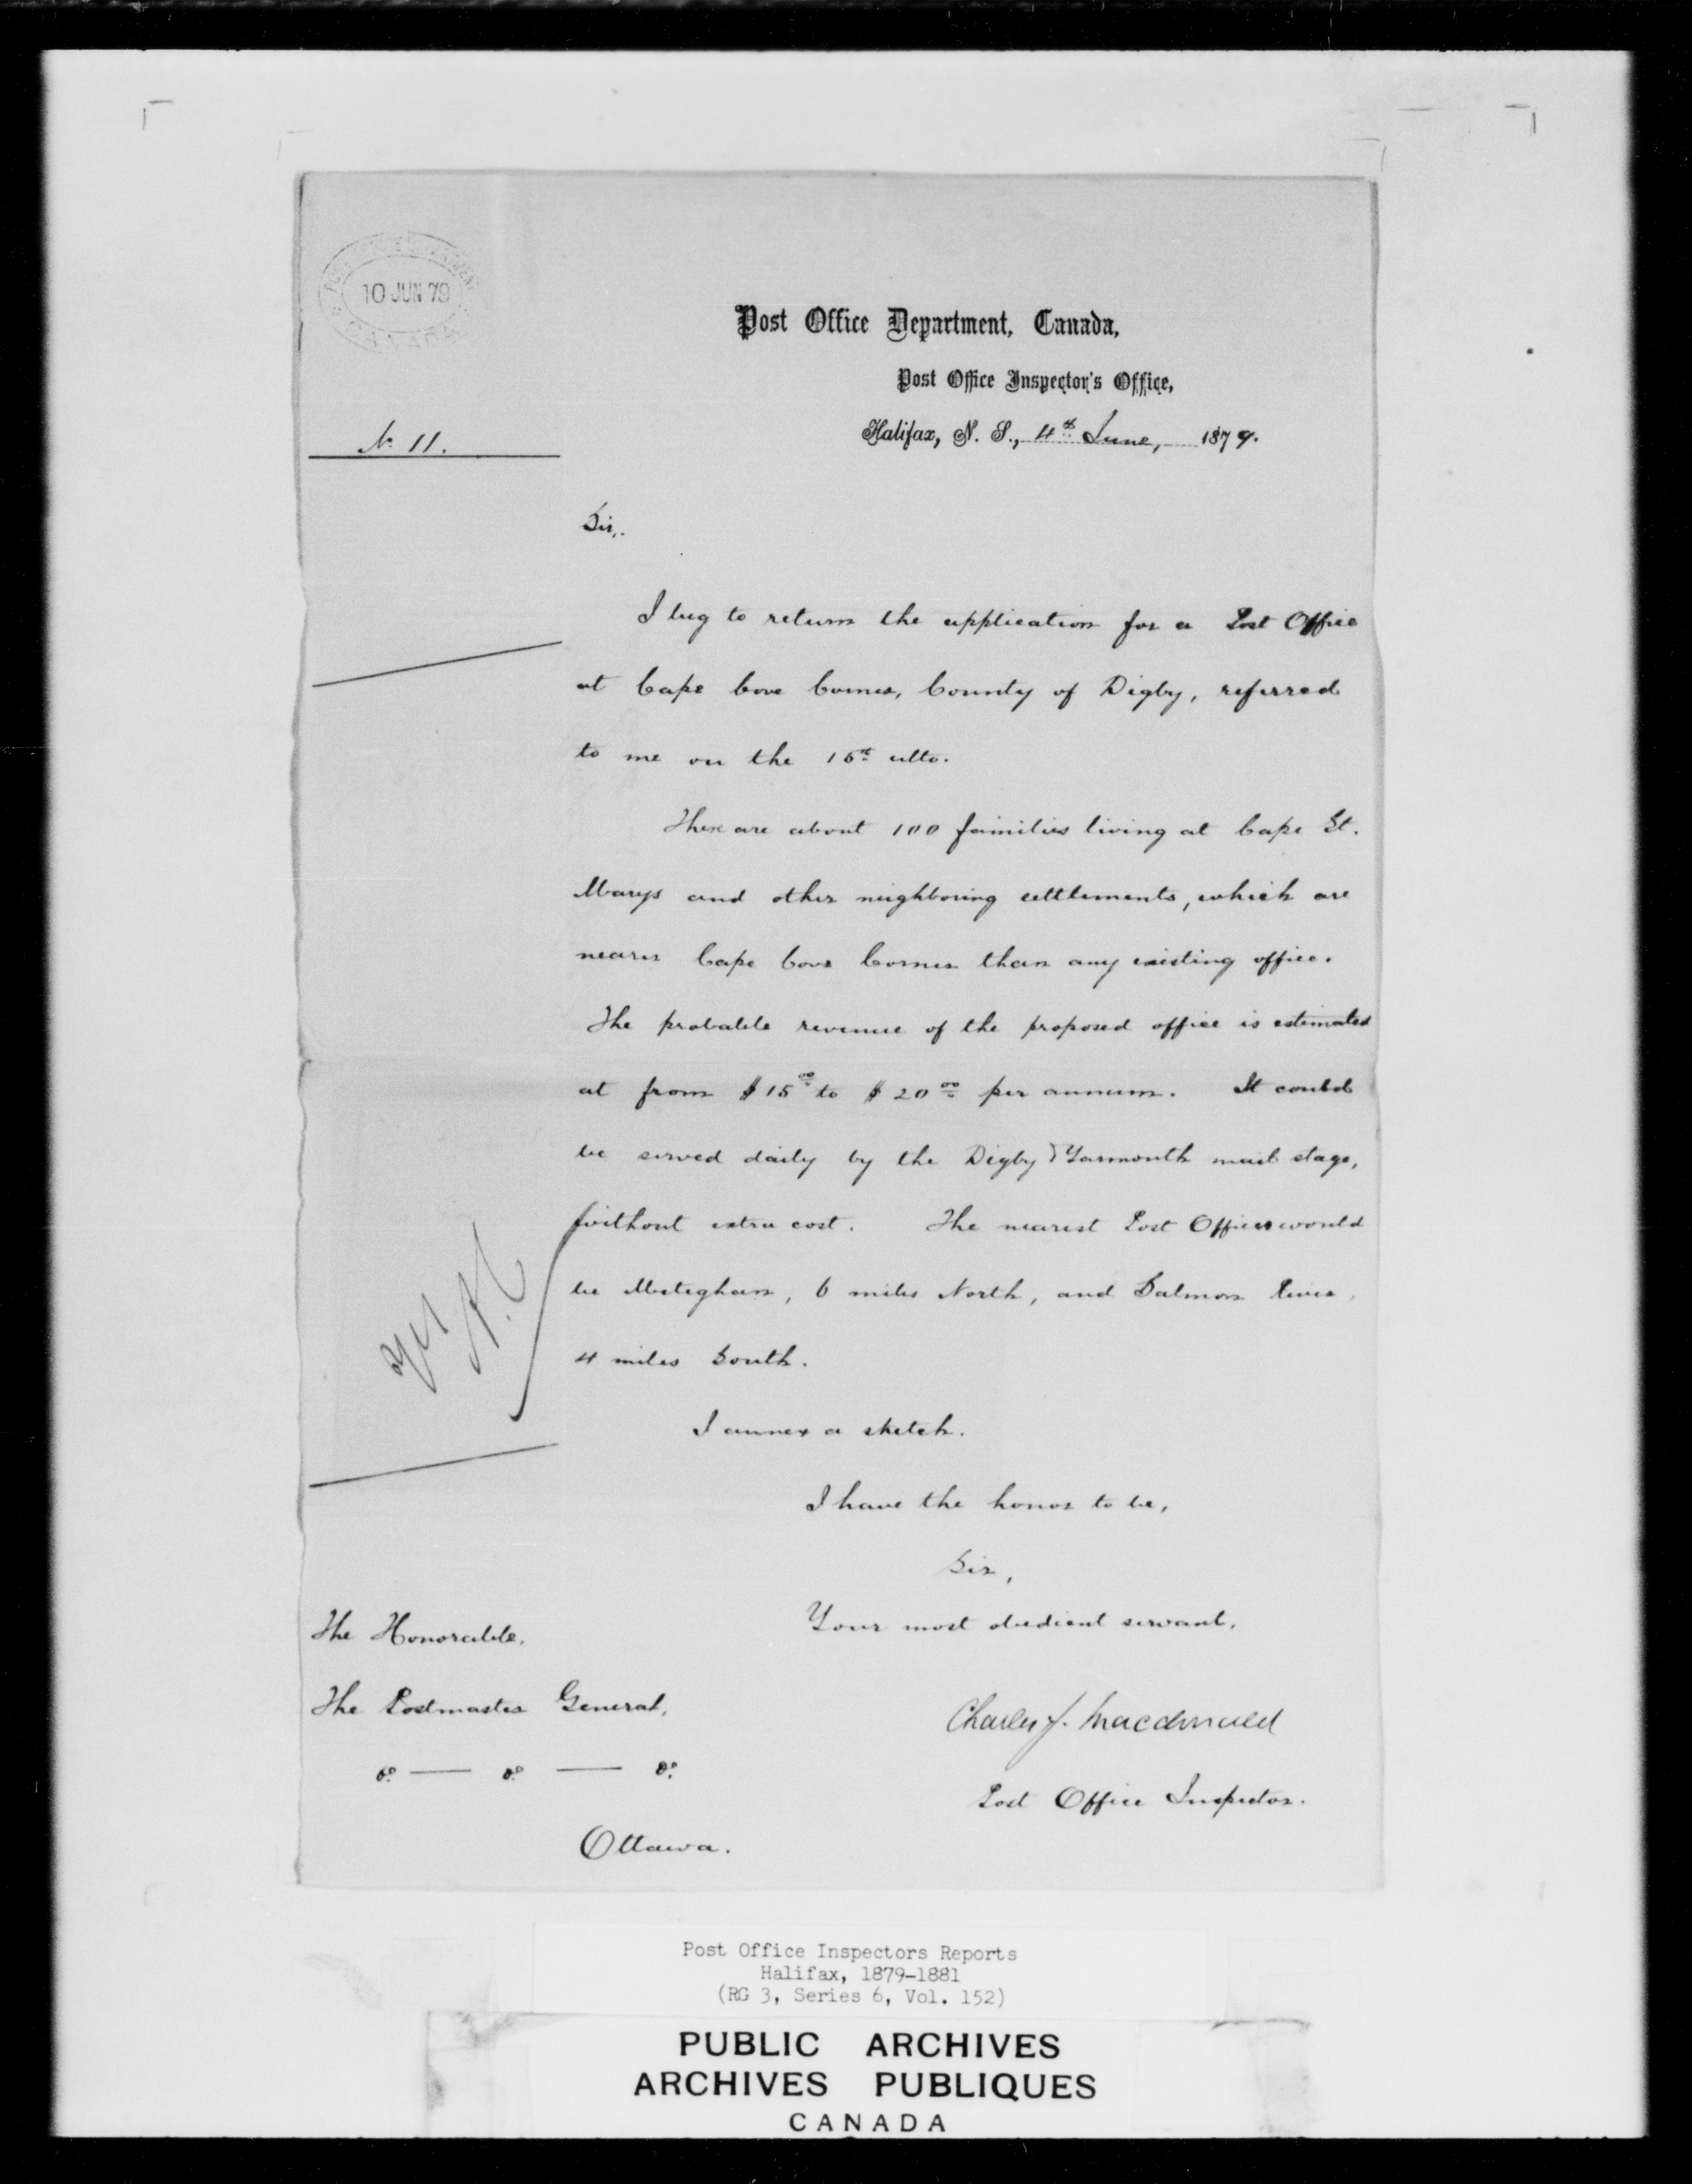 POST OFFICE DEPARTMENT
10 JUN 79
CANADA
Post Office Department, Canada,
Post Office Inspector's Office,
Halifax, N. S., 4th June, 1879.
No. 11.
Sir,
I beg to return the application for a Post Office
at Cape Cove Corner, County of Digby, referred
to me on the 15th ulto.
There are about 100 families living at Cape St.
Marys and other neighboring settlements, which are
nearer Cape Cove Corner than any existing office.
The probable revenue of the proposed office is estimated
at from $15 00 to $20 00 per annum. It could
be served daily by the Digby & Yarmouth mail stage,
without extra cost. The nearest Post Offices would
be Meteghan, 6 miles North, and Salmon River,
4 miles South.
I annex a sketch.
I have the honor to be,
Sir,
Your most obedient servant,
The Honorable,
The Postmaster General,
&c — &c — &c
Ottawa.
Charles J. Macdonald
Post Office Inspector.
Post Office Inspectors Reports
Halifax, 1879-1881
(RG 3, Series 6, Vol. 152)
PUBLIC ARCHIVES
ARCHIVES PUBLIQUES
CANADA